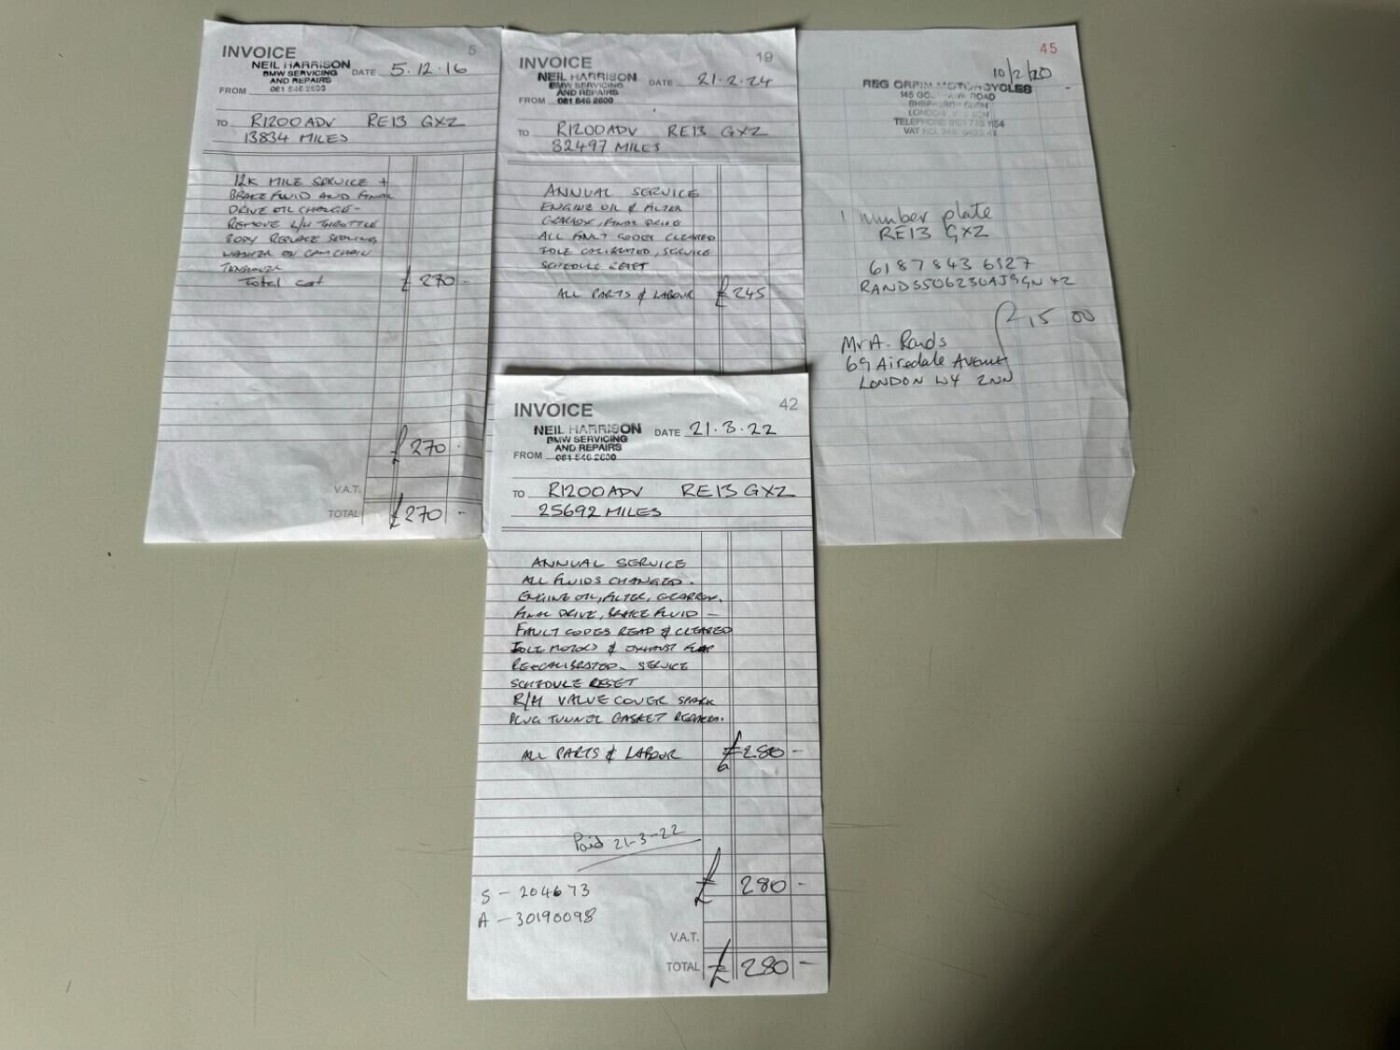 INVOICE 5
NEIL HARRISON
BMW SERVICING
AND REPAIRS
DATE 5.12.16
FROM 081 546 2600
TO R1200ADV RE13 GXZ
13834 MILES
12K MILE SERVICE +
BRAKE FLUID AND FINAL
DRIVE OIL CHANGE-
REMOVE L/H THROTTLE
BODY REPLACE SEALING
WASHER ON CAM CHAIN
TENSIONER
Total cost £270-
£270-
V.A.T.
TOTAL £270-
INVOICE 19
NEIL HARRISON
BMW SERVICING
AND REPAIRS
DATE 21.2.24
FROM 081 546 2600
TO R1200ADV RE13 GXZ
32497 MILES
ANNUAL SERVICE
ENGINE OIL & FILTER
GEARBOX, FINAL DRIVE
ALL FAULT CODES CLEARED
IDLE CALIBRATED, SERVICE
SCHEDULE RESET
ALL PARTS & LABOUR £245
45
10/2/20
REG ORPIN MOTORCYCLES
ROAD
LONDON
TELEPHONE
VAT
1 number plate
RE13 GXZ
6187843 6127
RANDS506230AJ9GN 42
£15 00
Mr A. Rands
69 Airedale Avenue
LONDON W4 2NN
INVOICE 42
NEIL HARRISON
BMW SERVICING
AND REPAIRS
DATE 21.3.22
FROM 081 546 2600
TO R1200ADV RE13 GXZ
25692 MILES
ANNUAL SERVICE
ALL FLUIDS CHANGED.
ENGINE OIL, FILTER, GEARBOX,
FINAL DRIVE, BRAKE FLUID -
FAULT CODES READ & CLEARED
IDLE MOTORS & EXHAUST FLAP
RE-CALIBRATED. SERVICE
SCHEDULE RESET
R/H VALVE COVER SPARK
PLUG TUNNEL GASKET
ALL PARTS & LABOUR £280-
Paid 21-3-22
S - 204673
A - 30190098
£ 280-
V.A.T.
TOTAL £ 280-